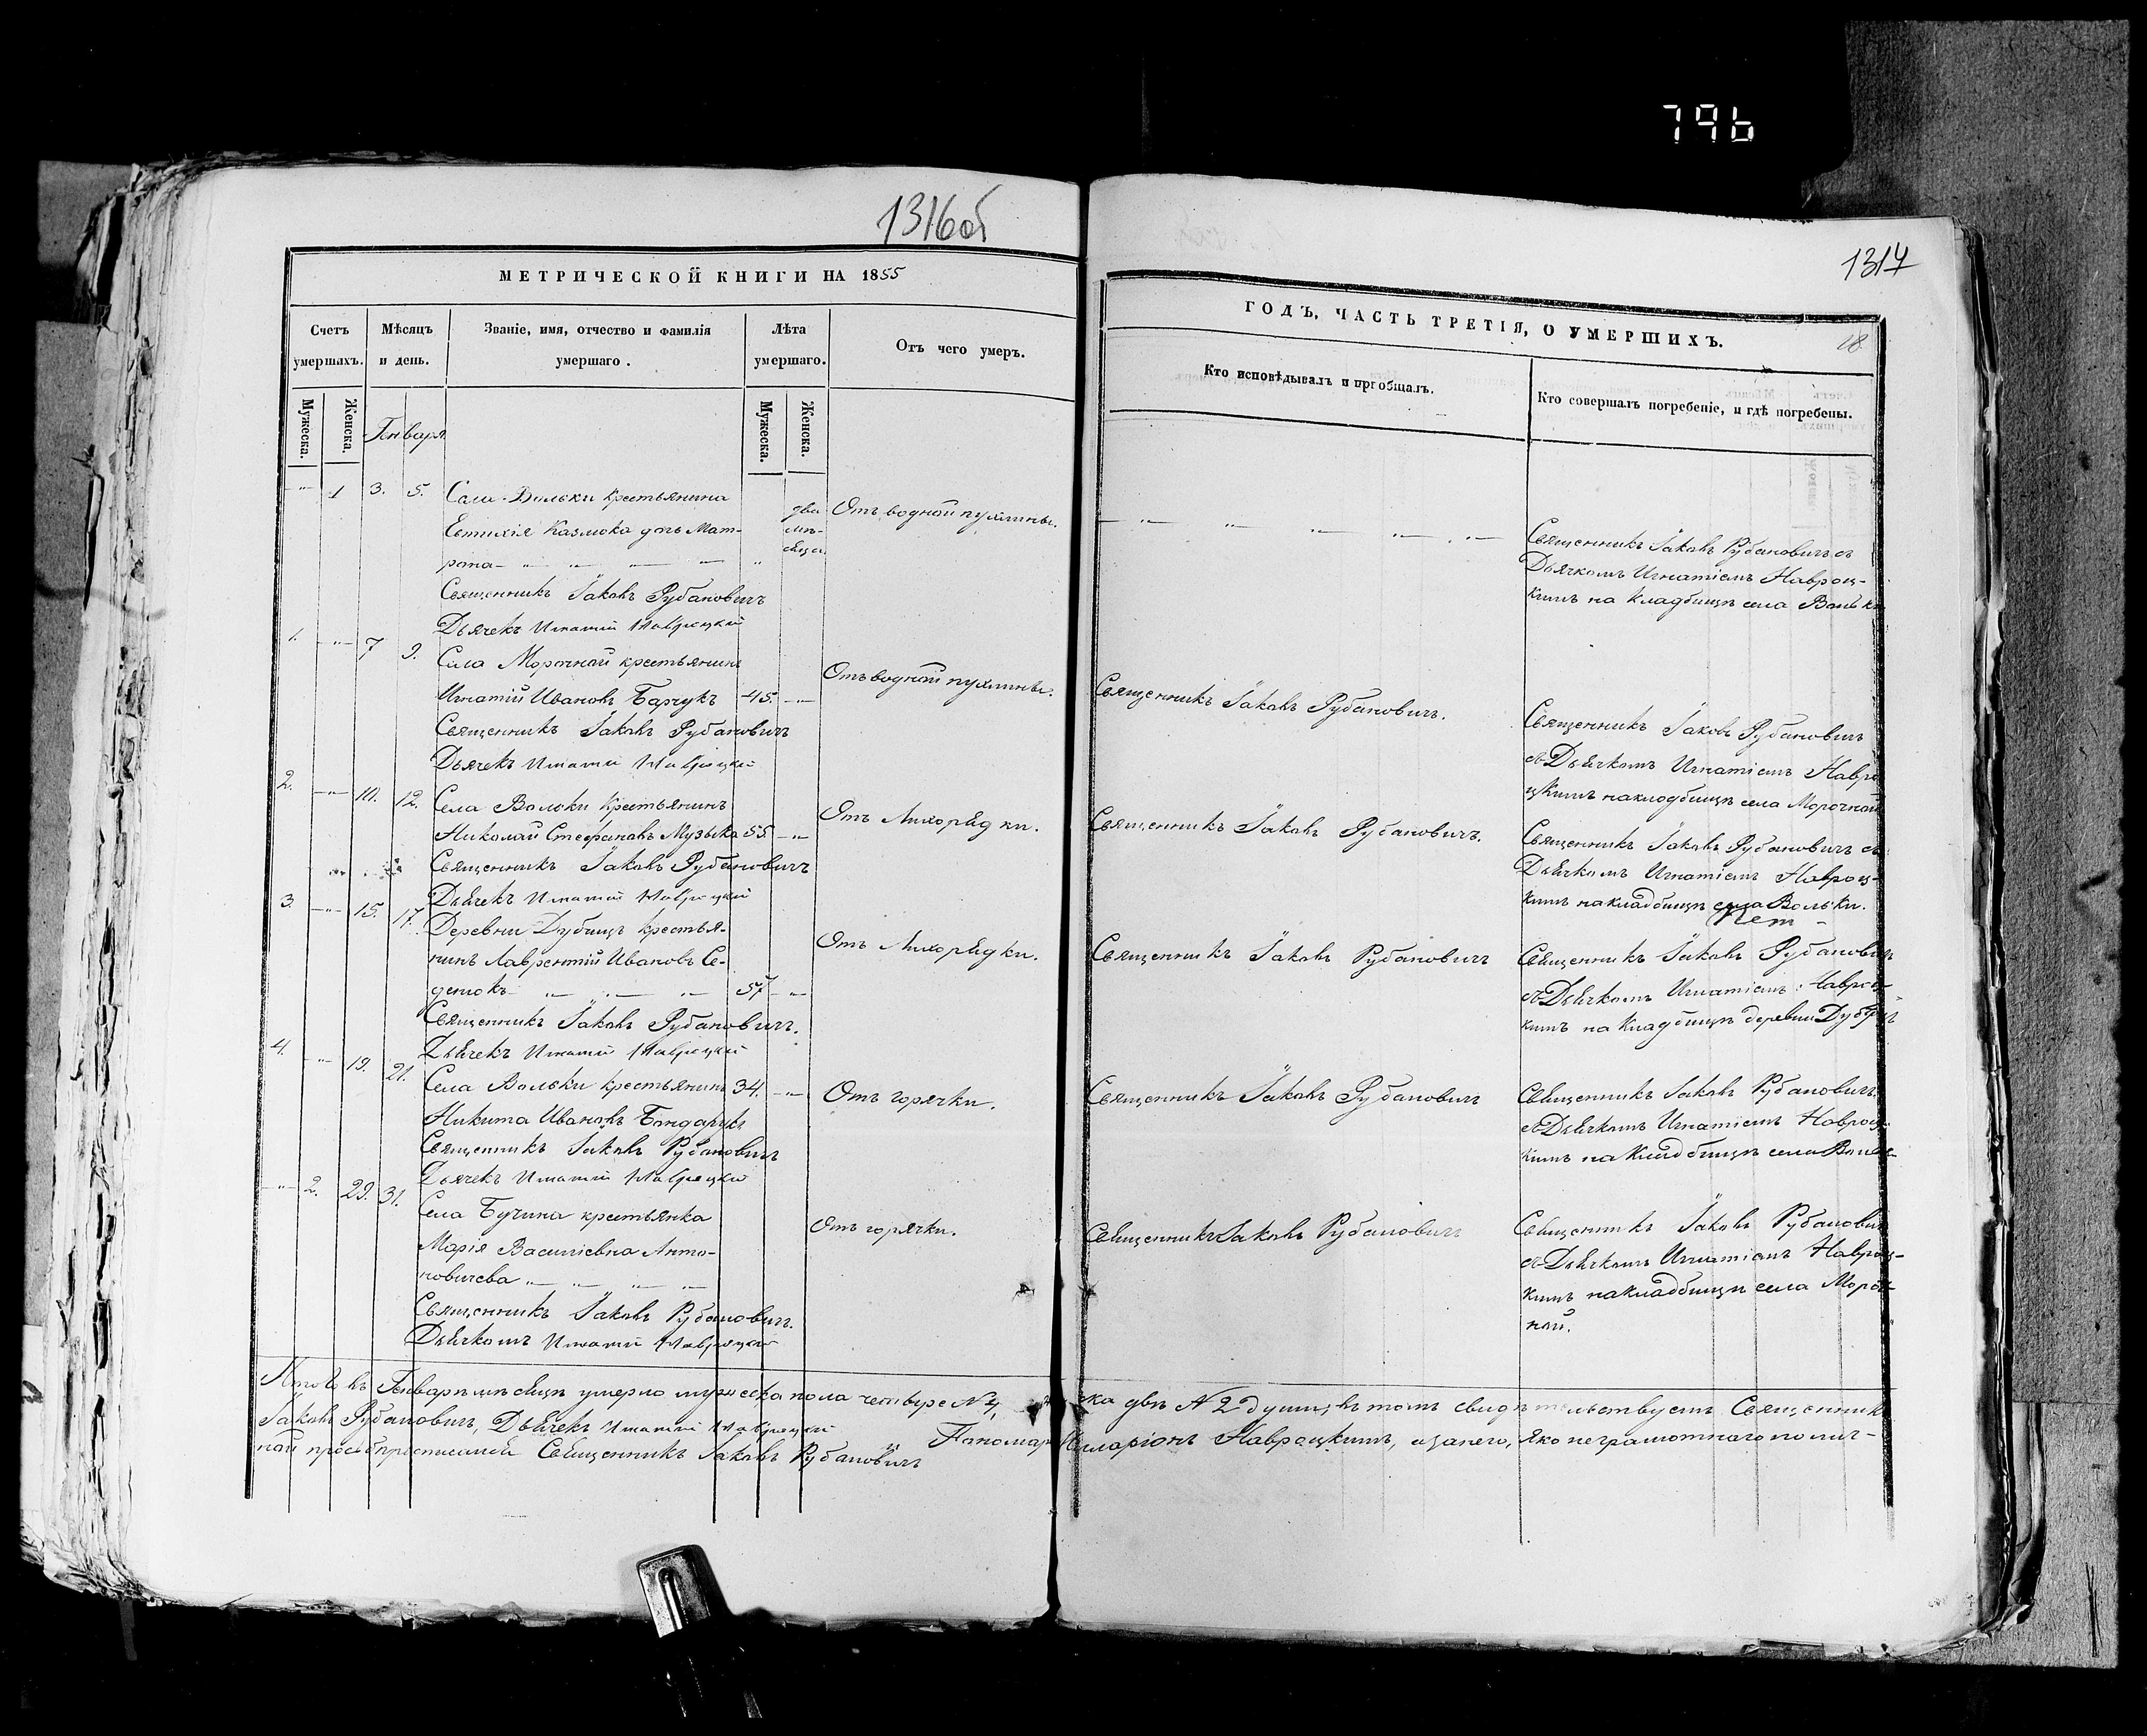 796
1316об
МЕТРИЧЕСКОЙ КНИГИ НА 1855
Счетъ умершихъ.
Мѣсяцъ и день.
Званіе, имя, отчество и фамилія умершаго.
Лѣта умершаго.
Отъ чего умеръ.
Мужеска.
Женска.
Генваря
Мужеска.
Женска.
" 1 3. 5. Села Вольки крестьянина
Евтихія Казмюка дочь Мат-
рона
два мѣ-
сяца
Отъ водной пухлины.
Священникъ Іаковъ Рубановичъ
Дьячекъ Игнатій Навроцкій
1. " 7 9. Села Морочной крестьянинъ
Игнатій Ивановъ Барчукъ 45. "
Отъ водной пухлины.
Священникъ Іаковъ Рубановичъ
Дьячекъ Игнатій Навроцкій
2. " 10. 12. Села Вольки крестьянинъ
Николай Стефановъ Музыка 55 "
Отъ Лихорядки.
Священникъ Іаковъ Рубановичъ
Дьячекъ Игнатій Навроцкій
3. " 15. 17. Деревни Дубицъ крестья-
нинъ Лаврентій Ивановъ Се-
57 "
Отъ Лихорядки.
Священникъ Іаковъ Рубановичъ.
Дьячекъ Игнатій Навроцкій
4. " 19. 21. Села Вольки крестьянинъ 34. "
Никита Ивановъ Бондарукъ
Отъ горячки.
Священникъ Іаковъ Рубановичъ
Дьячекъ Игнатій Навроцкій
" 2. 29. 31. Села Бучина крестьянка
Марія Василіевна Анто-
новичева
Отъ горячки.
Священникъ Іаковъ Рубановичъ.
Дьячкомъ Игнатій Навроцкій
1317
18
ГОДЪ, ЧАСТЬ ТРЕТІЯ, О УМЕРШИХЪ.
Кто исповѣдывалъ и пріобщалъ.
Кто совершалъ погребеніе, и гдѣ погребены.
Священникъ Іаковъ Рубановичъ съ
Дьячкомъ Игнатіемъ Навроц-
кимъ на кладбищѣ села Вольки
Священникъ Іаковъ Рубановичъ.
Священникъ Іаковъ Рубановичъ
съ Дьячкомъ Игнатіемъ Навро
цкимъ на кладбищѣ села Морочной
Священникъ Іаковъ Рубановичъ.
Священникъ Іаковъ Рубановичъ съ
Дьячкомъ Игнатіемъ Навроц-
кимъ на кладбищѣ села Вольки.
Священникъ Іаковъ Рубановичъ
Священникъ Іаковъ Рубановичъ
съ Дьячкомъ Игнатіемъ Навроц-
кимъ на кладбищѣ деревни Дубицъ
Священникъ Іаковъ Рубановичъ
Священникъ Іаковъ Рубановичъ
съ Дьячкомъ Игнатіемъ Навроц-
кимъ на кладбищѣ села
Священникъ Іаковъ Рубановичъ
Священникъ Іаковъ Рубановичъ
съ Дьячкомъ Игнатіемъ Навроц-
кимъ на кладбищѣ села Мороч-
ной.
Итого въ Генварѣ мѣсяцѣ умерло мужеска пола четыре №4, ска двѣ №2 души, въ томъ свидѣтельствуемъ Священникъ
Іаковъ Рубановичъ, Дьячекъ Игнатій Навроцкій Пономарь Иларіонъ Навроцкимъ, а за него, яко неграмотнаго по лич-
ной просьбѣ Священникъ Іаковъ Рубановичъ